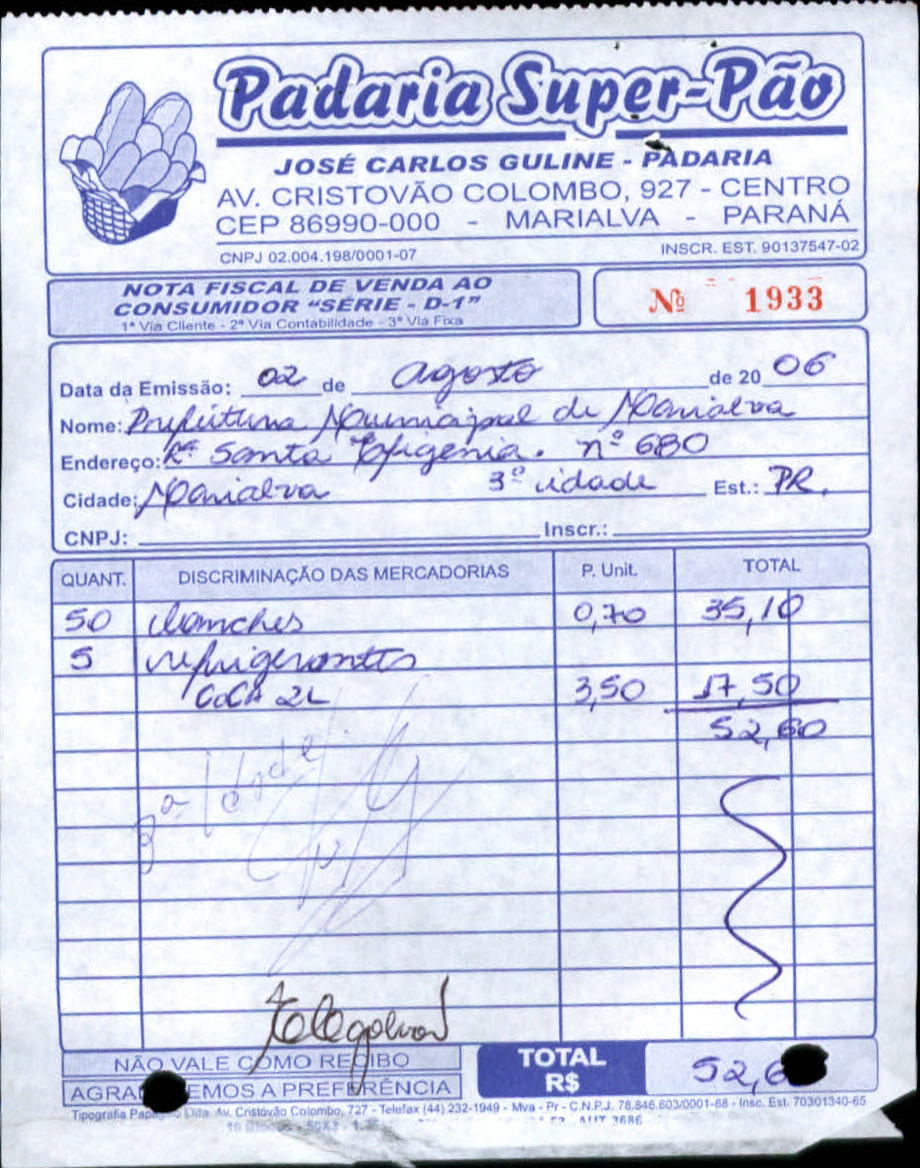 Padaria Super-Pão
JOSÉ CARLOS GULINE - PADARIA
AV. CRISTOVÃO COLOMBO, 927 - CENTRO
CEP 86990-000 - MARIALVA - PARANÁ
CNPJ 02.004.198/0001-07 INSCR. EST. 90137547-02
NOTA FISCAL DE VENDA AO
CONSUMIDOR "SÉRIE - D-1"
1ª Via Cliente - 2ª Via Contabilidade - 3ª Via Fixa
Nº 1933
Data da Emissão: 02 de agosto de 2006
Nome: Prefeitura Municipal de Marialva
Endereço: Rª Santa Efigenia. nº 680
Cidade: Marialva 3º idade Est.: PR.
CNPJ: Inscr.:
QUANT. DISCRIMINAÇÃO DAS MERCADORIAS P. Unit. TOTAL
50 lanches 0,70 35,10
5 refrigerantes
CoCA 2L 3,50 17,50
52,60
3ª Idade
NÃO VALE COMO RECIBO
A PREFERÊNCIA
TOTAL
R$ 52,6
Tipografia Ltda. Av. Cristóvão Colombo, 727 - Telefax (44) 232-1949 - Mva - Pr - C.N.P.J. 78.846.603/0001-68 - Insc. Est. 70301340-65
AUT 3686